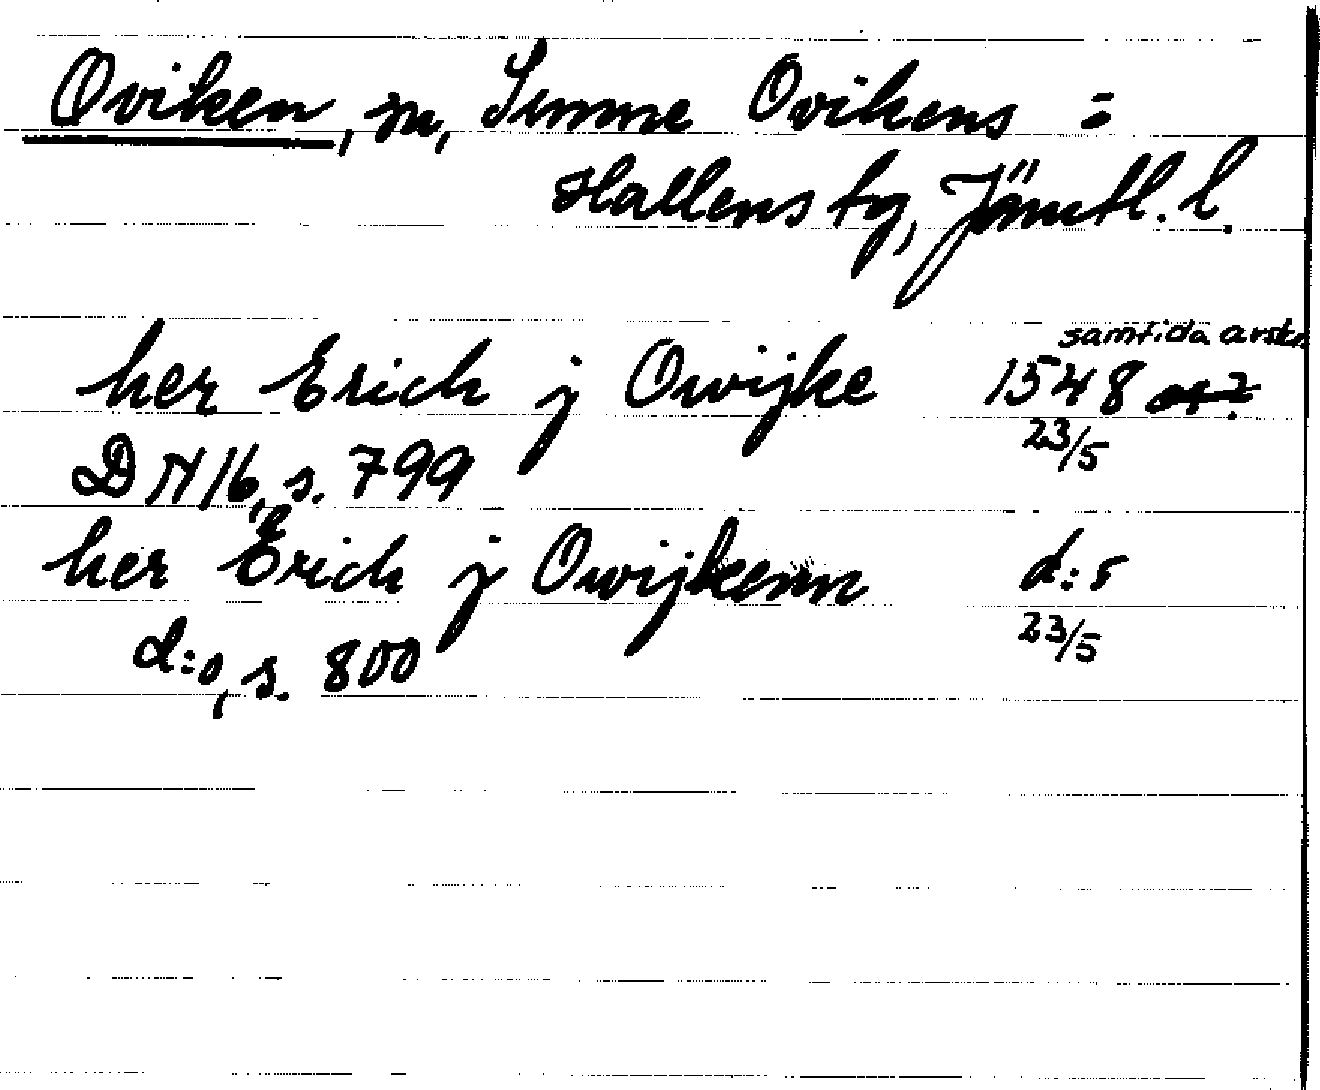 Oviken, sn, Sunne Ovikens =
Hallens tg, Jämtl. l.
samtida avskr
her Erich j Owijke 1548
23/5
DN 16, s. 799
her Erich j Owijkenn d:o
23/5
d:o, s. 800